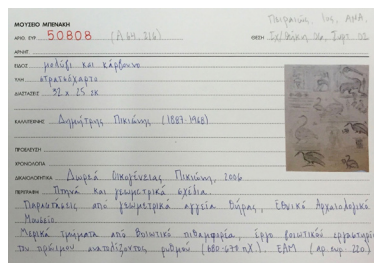 ΜΟΥΣΕΙΟ ΜΠΕΝΑΚΗ
ΑΡΙΘ. ΕΥΡ. 50808 (Α 64. 216)
Πειραιώς, Ιος, ΑΝΑ.
ΘΕΣΗ Σχ/θήκη 06, Συρτ. 02
ΑΡΝΗΤ.
ΕΙΔΟΣ μολύβι και κάρβουνο
ΥΛΗ στρατσόχαρτο
ΔΙΑΣΤΑΣΕΙΣ 32 x 25 εκ.
ΚΑΛΛΙΤΕΧΝΗΣ Δημήτρης Πικιώνης (1887-1968)
ΠΡΟΕΛΕΥΣΗ
ΧΡΟΝΟΛΟΓΙΑ
Δωρεά Οικογένειας Πικιώνη, 2006
ΠΕΡΙΓΡΑΦΗ Πτηνά και γεωμετρικά σχέδια.
Παραστάσεις από γεωμετρικά αγγεία Θήρας, Εθνικό Αρχαιολογικό
Μουσείο.
Μερικά τμήματα από βοιωτικό πιθαμφορέα, έργο βοιωτικού εργαστηρίου
του πρώιμου ανατολίζοντος ρυθμού (680-670 π.Χ.). ΕΑΜ (αρ. ευρ. 220)